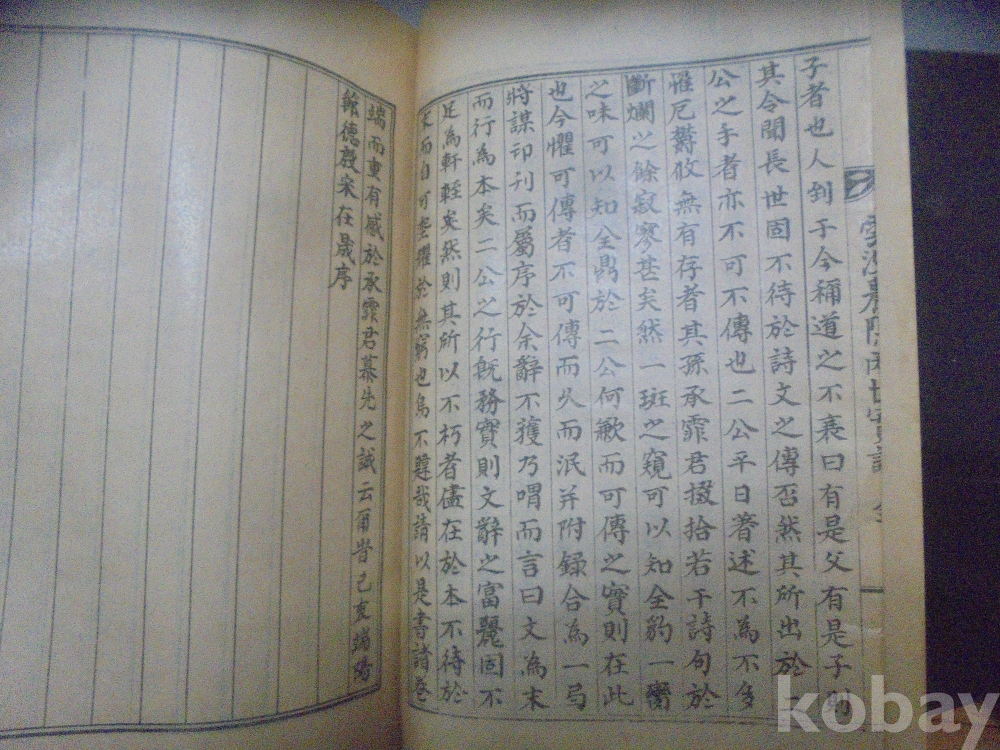 子者也人到于今稱道之不衰曰有是父有是子則
其令聞長世固不待於詩文之傳否然其所出於二
公之手者亦不可不傳也二公平日著述不為不多
惟厄欝攸無有存者其孫承霏君掇拾若干詩句於
斷爛之餘寂寥甚矣然一斑之窺可以知全豹一臠
之味可以知全鼎於二公何歉而可傳之實則在此
也今懼可傳者不可傳而久而泯并附録合為一弓
將謀印刊而屬序於余辭不獲乃喟而言曰文為末
而行為本矣二公之行既務實則文辭之富麗固不
足為軒輊矣然則其所以不朽者儘在於本不待於
末而自可垂耀於無窮也烏不韙哉請以是書諸卷
端而重有感於承霏君慕先之誠云爾昔己亥端陽
德殷宋在晟序
雲沙農隱兩世實記 全
kobay